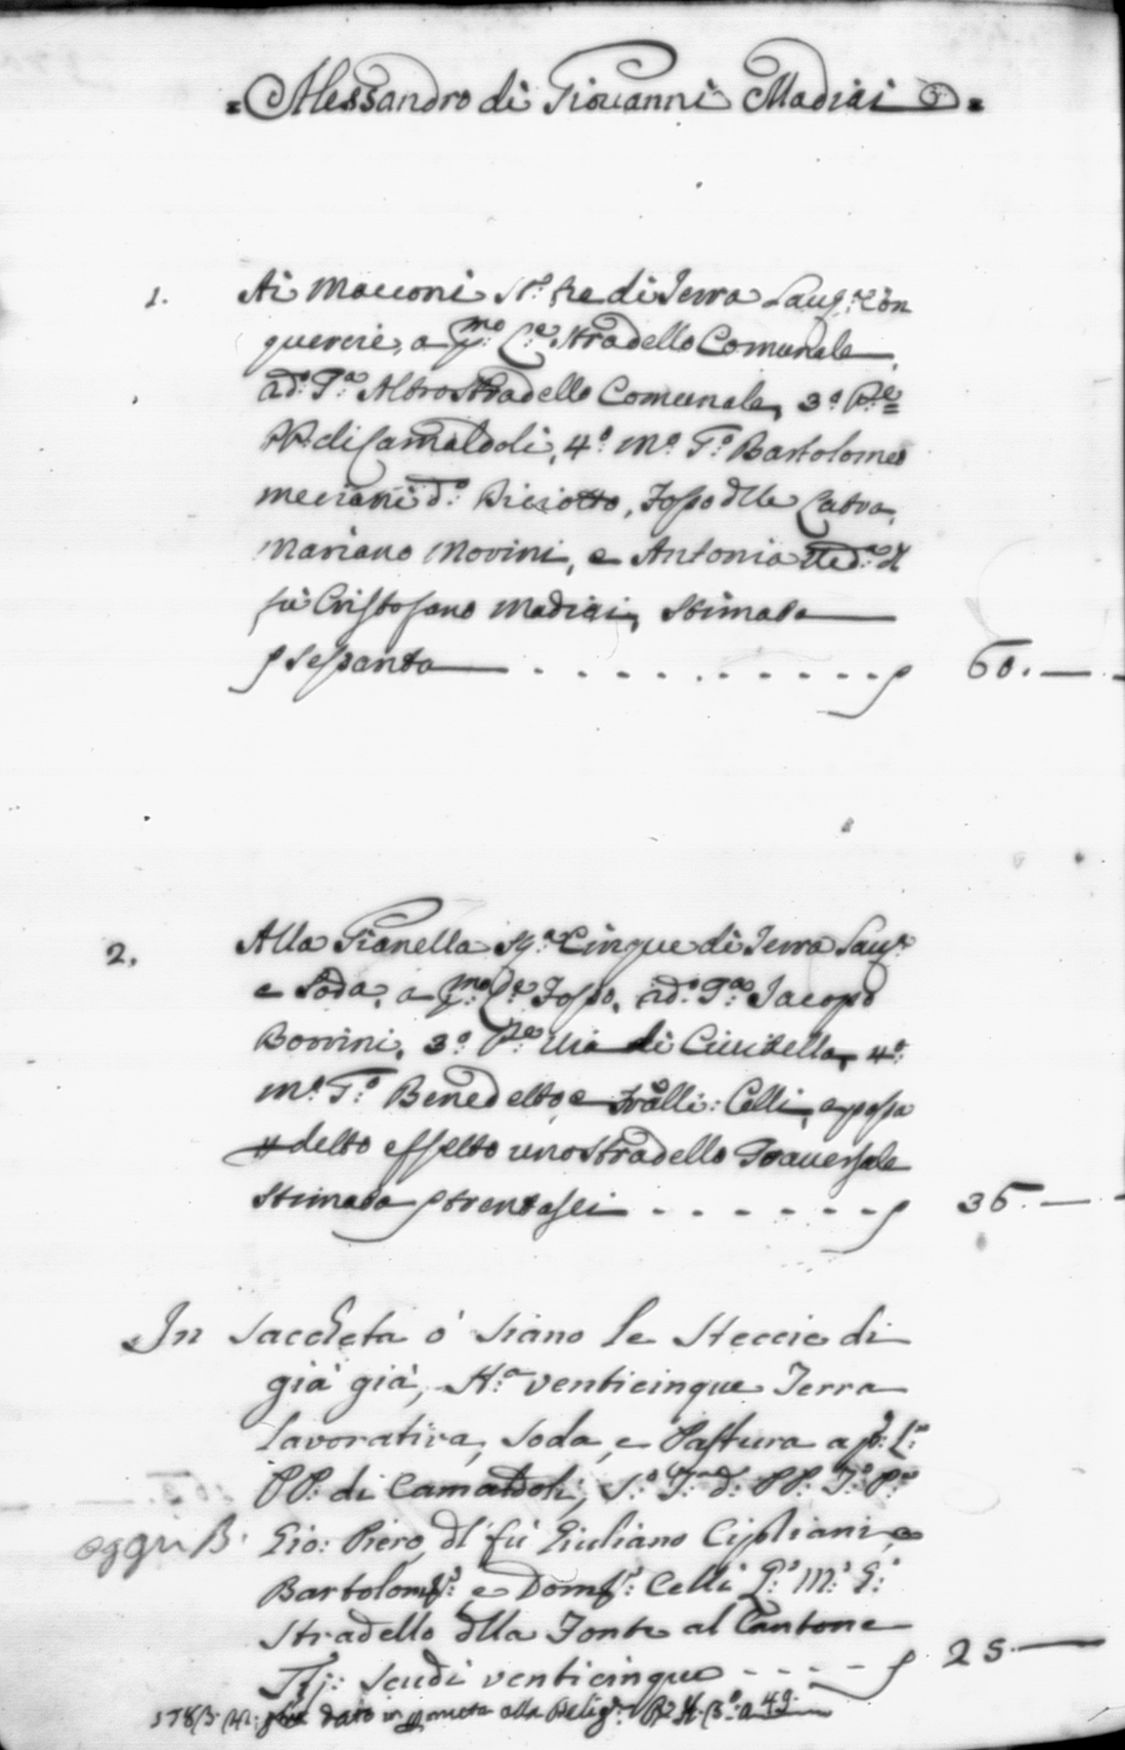 Alessandro di Giovanni Madiai
1. Ai Macconi St.a tre di Terra Lau:a con
quercie, a p:mo C:e Stradello Comunale,
ad:o P:a Altro Stradello Comunale, 3:o P:e
PP. di Camaldoli, 4:o M:o G:o Bartolomeo
meciani d:o Riciotto, Fosso dlle
Mariano Morini, e Antonia Ved:a di
fù Cristofano Madiai, Stimata
sessanta 60.
2. Alla Pianella St:a Cinque di Terra Lau:a
e Soda, a p:mo C:e Fosso, ad:o P:a Jacopo
Borrini, 3:o P:e Via di Ciuitella, 4:o
M:o G:o Benedetto, e Fratelli: Celli, e passa
detto effetto uno Stradello Trauersale
Stimata trentasei 36.
In Saccheta ò siano le Steccie di
già già, St:a venticinque Terra
lavorativa, soda, e Pastura a p:o L:o
PP: di Camaldoli, S:o T:a d: PP: T:o P:a
Gio: Piero dl' fù Giuliano Cipriani, e
oggi B:
Bartolom:o, e Dom:o Celli Q:o M:o G:o
Stradello dlla Fonte al Cantone
scudi venticinque 25.
dato in alla Relig:e a 49.